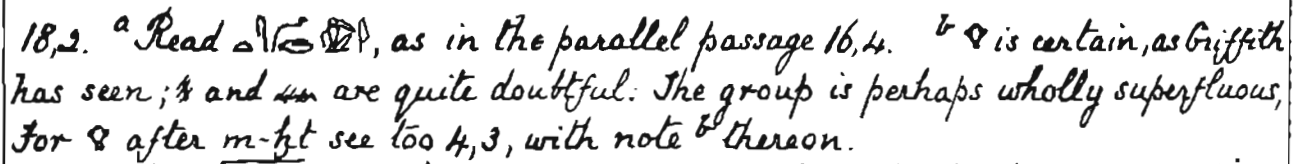 18,2. ᵃ Read, as in the parallel passage 16,4. ᵇ is certain, as Griffith
has seen; and are quite doubtful. The group is perhaps wholly superfluous,
For after m-ḫt see too 4,3, with note ᵇ thereon.